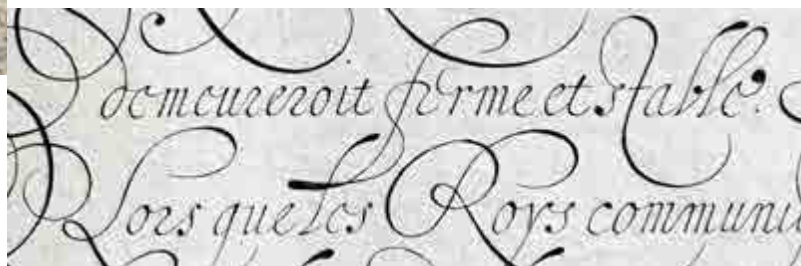 demeureroit ferme et stable.
Lors que les Roys communi